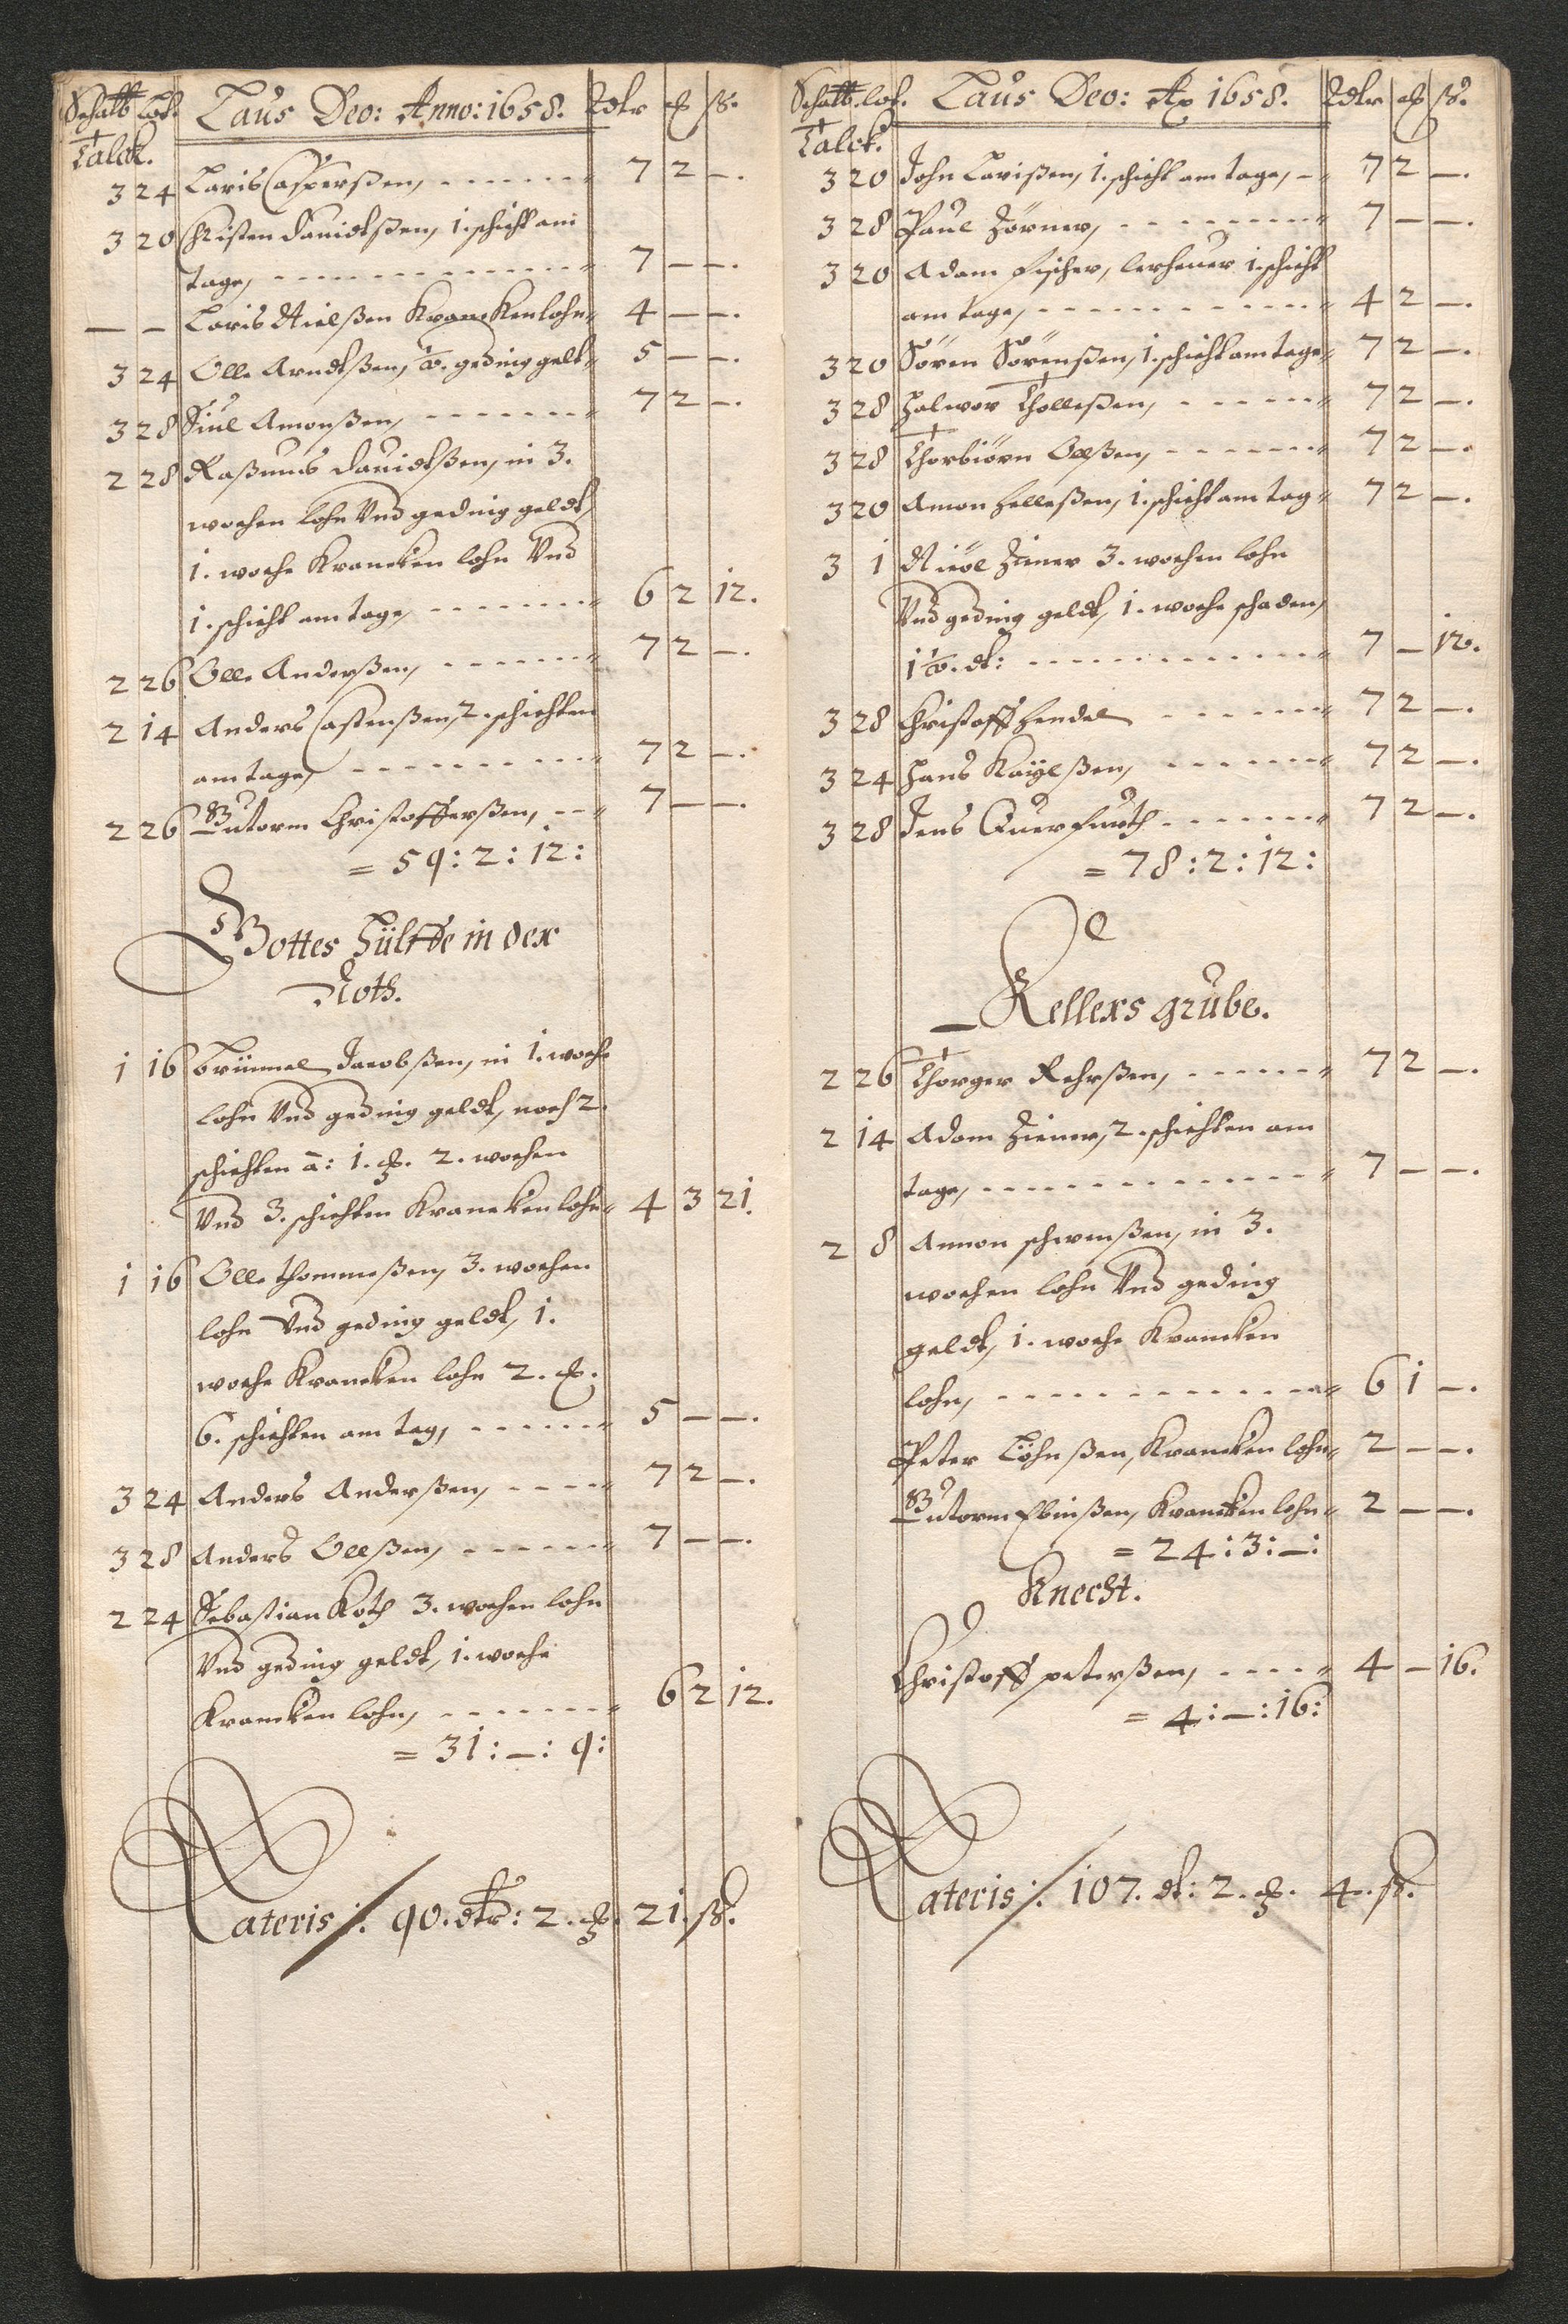 Schatt lod. Laus Deo: Anno: 1658. Rdlr ß.
Talck.
3 24 Laris Casperßen, 7 2 —.
3 20 Christen Dauidtßen, 1. schicht am
tage, 7 — —.
— — Laris Nielßen Kranckenlohn 4 — —.
3 24 Olle Arndtßen, geding geldt 5 — —.
3 28 Siul Amonßen, 7 2 —.
2 28 Raßmus Dauidtßen, in 3.
wochen lohn Vnd geding geldt,
1. woche Krancken lohn Vnd
1. schicht am tage, 6 2 12.
2 26 Olle Anderßen, 7 2 —.
2 14 Anders Castenßen, 2. schichten
am tage, 7 2 —.
2 26 Gutorm Christofferßen, 7 — —.
= 59: 2: 12:
Gottes Hülffe in der
Noth.
1 16 Brümmel Jacobßen, in 1. woche
lohn Vnd geding geldt, noch 2.
schichten â: 1. 2. wochen
Vnd 3. schichten Kranckenlohn 4 3 21.
1 16 Olle thommeßen, 3. wochen
lohn Vnd geding geldt, 1.
woche Krancken lohn 2.
6. schichten am tag, 5 — —.
3 24 Anders Anderßen, 7 2 —.
3 28 Anders Olßen, 7 — —.
2 24 Sebastian Koth 3. wochen lohn
Vnd geding geldt, 1. woche
Krancken lohn, 6 2 12.
= 31: —: 9:
Lateris /. 90. dlr: 2. 21. ß.
Schatt. lod. Laus Deo: Ao 1658. Rdlr ß.
Talck.
3 20 John Larißen, 1. schicht am tage, 7 2 —.
3 28 Paul Zörner, 7 — —.
3 20 Adam fischer, lerheuer 1. schicht
am tage, 4 2 —.
3 20 Sören Sörenßen, 1. schicht am tage 7 2 —.
3 28 Halwor Tholleßen, 7 2 —.
3 28 Thorbiörn Olßen, 7 2 —.
3 20 Amon Helleßen, 1. schicht am tag 7 2 —.
3 1 Nièol Zimer 3. wochen lohn
Vnd geding geldt, 1. woche schaden,
1 dl: 7 — 12.
3 28 Christoff Hendel 7 2 —.
3 24 Hans Kaÿelßen, 7 2 —.
3 28 Jens Querfurth 7 2 —.
= 78: 2: 12:
Kellers grube.
2 26 Thorger Rehrßen, 7 2 —.
2 14 Adam Zimer, 2. schichten am
tage, 7 — —.
2 8 Ammon schwenßen, in 3.
wochen lohn Vnd geding
geldt, 1. woche Krancken
lohn, 6 1 —.
Peter Löhnßen, Krancken lohn 2 — —.
Gutorm Ebinßen, Krancken lohn 2 — —.
= 24: 3: —:
Knecht.
Christoff peterßen, 4 — 16.
= 4: —: 16:
Lateris /. 107. dl: 2. 4. ß.